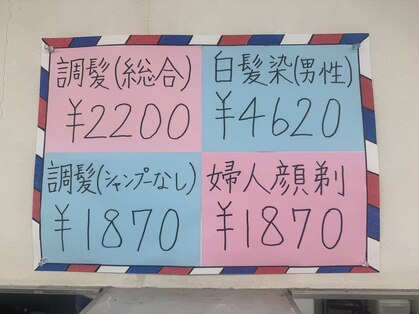 調髪(総合)
¥2200
白髪染(男性)
¥4620
調髪(シャンプーなし)
¥1870
婦人顔剃
¥1870